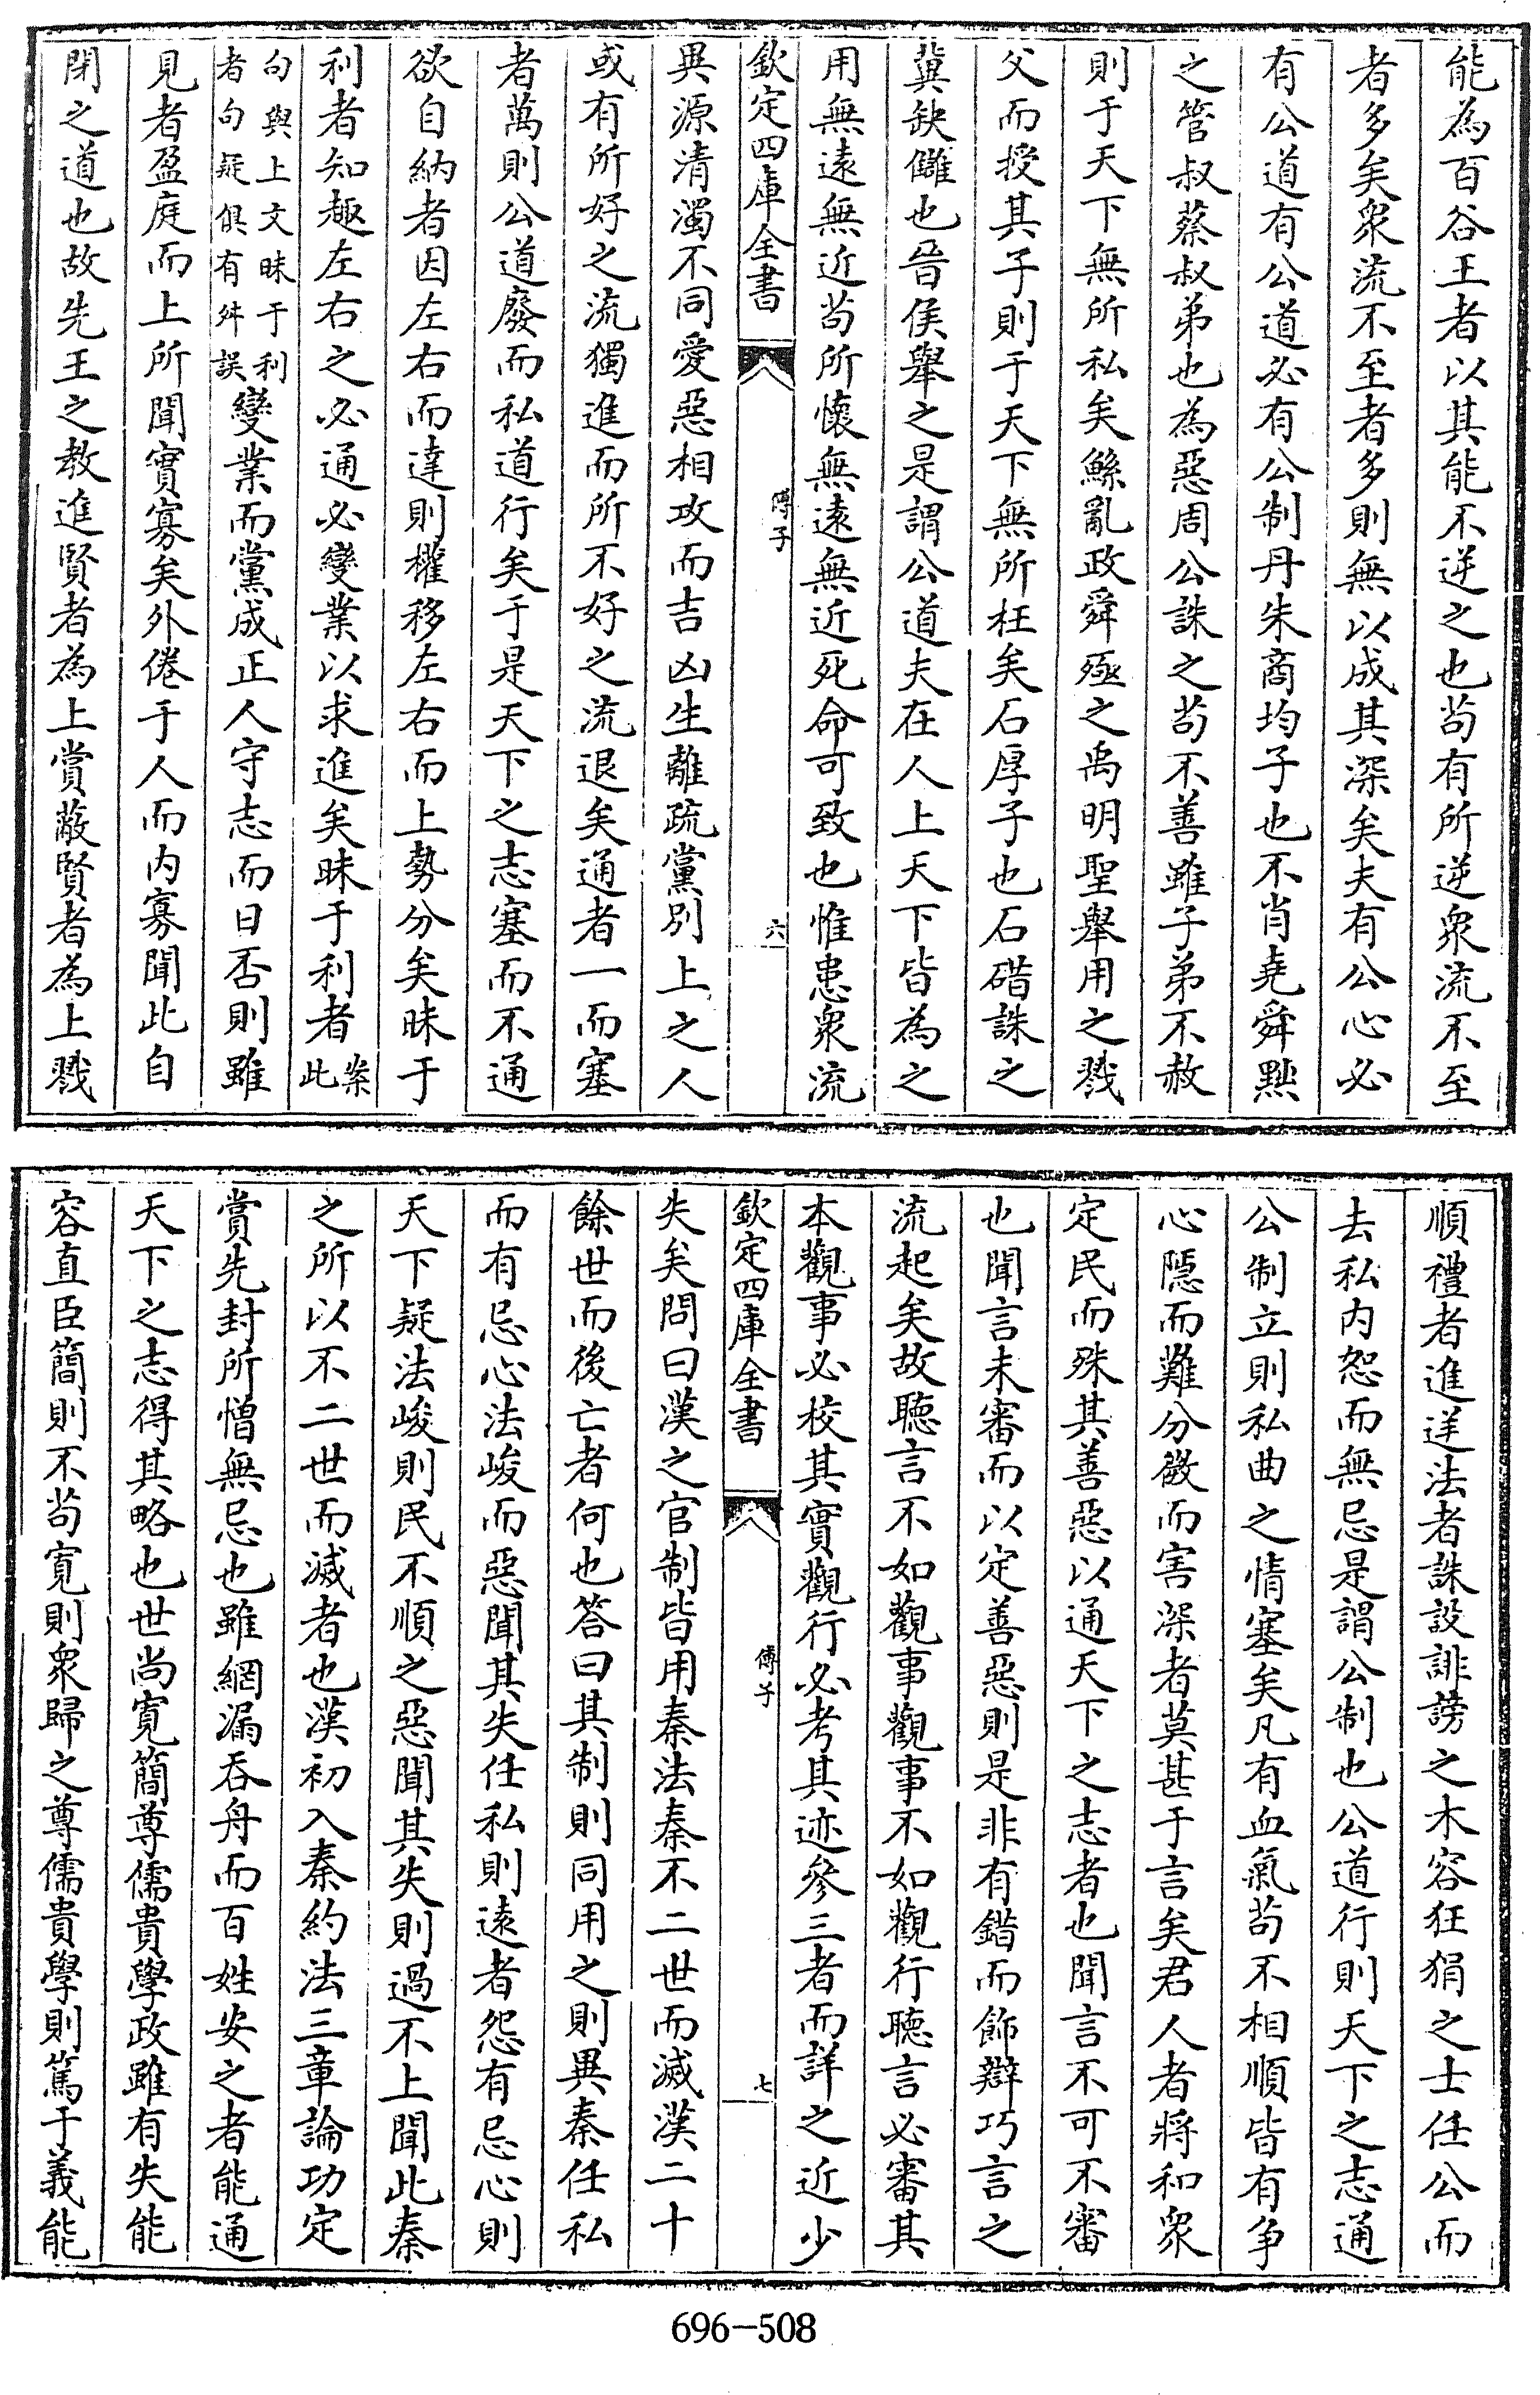 能為百谷王者以其能不逆之也茍有所逆衆流不至
者多矣衆流不至者多則無以成其深矣夫有公心必
有公道有公道必有公制丹朱商均子也不肖堯舜黜
之管叔蔡叔弟也為惡周公誅之茍不善雖子弟不赦
則于天下無所私矣鯀亂政舜殛之禹明聖舉用之戮
父而授其子則于天下無所枉矣石厚子也石碏誅之
冀缺讎也晉侯舉之是謂公道夫在人上天下皆為之
用無遠無近茍所懷無遠無近死命可致也惟患衆流
欽定四庫全書
傅子
六
異源清濁不同愛惡相攻而吉凶生離疏黨別上之人
或有所好之流獨進而所不好之流退矣通者一而塞
者萬則公道廢而私道行矣于是天下之志塞而不通
欲自納者因左右而達則權移左右而上勢分矣昧于
利者知趣左右之必通必變業以求進矣昧于利者案此
句與上文昧于利
者句疑俱有舛誤變業而黨成正人守志而日否則雖
見者盈庭而上所聞實寡矣外倦于人而内寡聞此自
閉之道也故先王之教進賢者為上賞蔽賢者為上戮
順禮者進逆法者誅設誹謗之木容狂狷之士任公而
去私内恕而無忌是謂公制也公道行則天下之志通
公制立則私曲之情塞矣凡有血氣茍不相順皆有爭
心隱而難分微而害深者莫甚于言矣君人者將和衆
定民而殊其善惡以通天下之志者也聞言不可不審
也聞言未審而以定善惡則是非有錯而飾辯巧言之
流起矣故聽言不如觀事觀事不如觀行聽言必審其
本觀事必校其實觀行必考其迹參三者而詳之近少
欽定四庫全書
傅子
七
失矣問曰漢之官制皆用秦法秦不二世而滅漢二十
餘世而後亡者何也答曰其制則同用之則異秦任私
而有忌心法峻而惡聞其失任私則遠者怨有忌心則
天下疑法峻則民不順之惡聞其失則過不上聞此秦
之所以不二世而滅者也漢初入秦約法三章論功定
賞先封所憎無忌也雖網漏吞舟而百姓安之者能通
天下之志得其略也世尚寛簡尊儒貴學政雖有失能
容直臣簡則不茍寛則衆歸之尊儒貴學則篤于義能
696-508